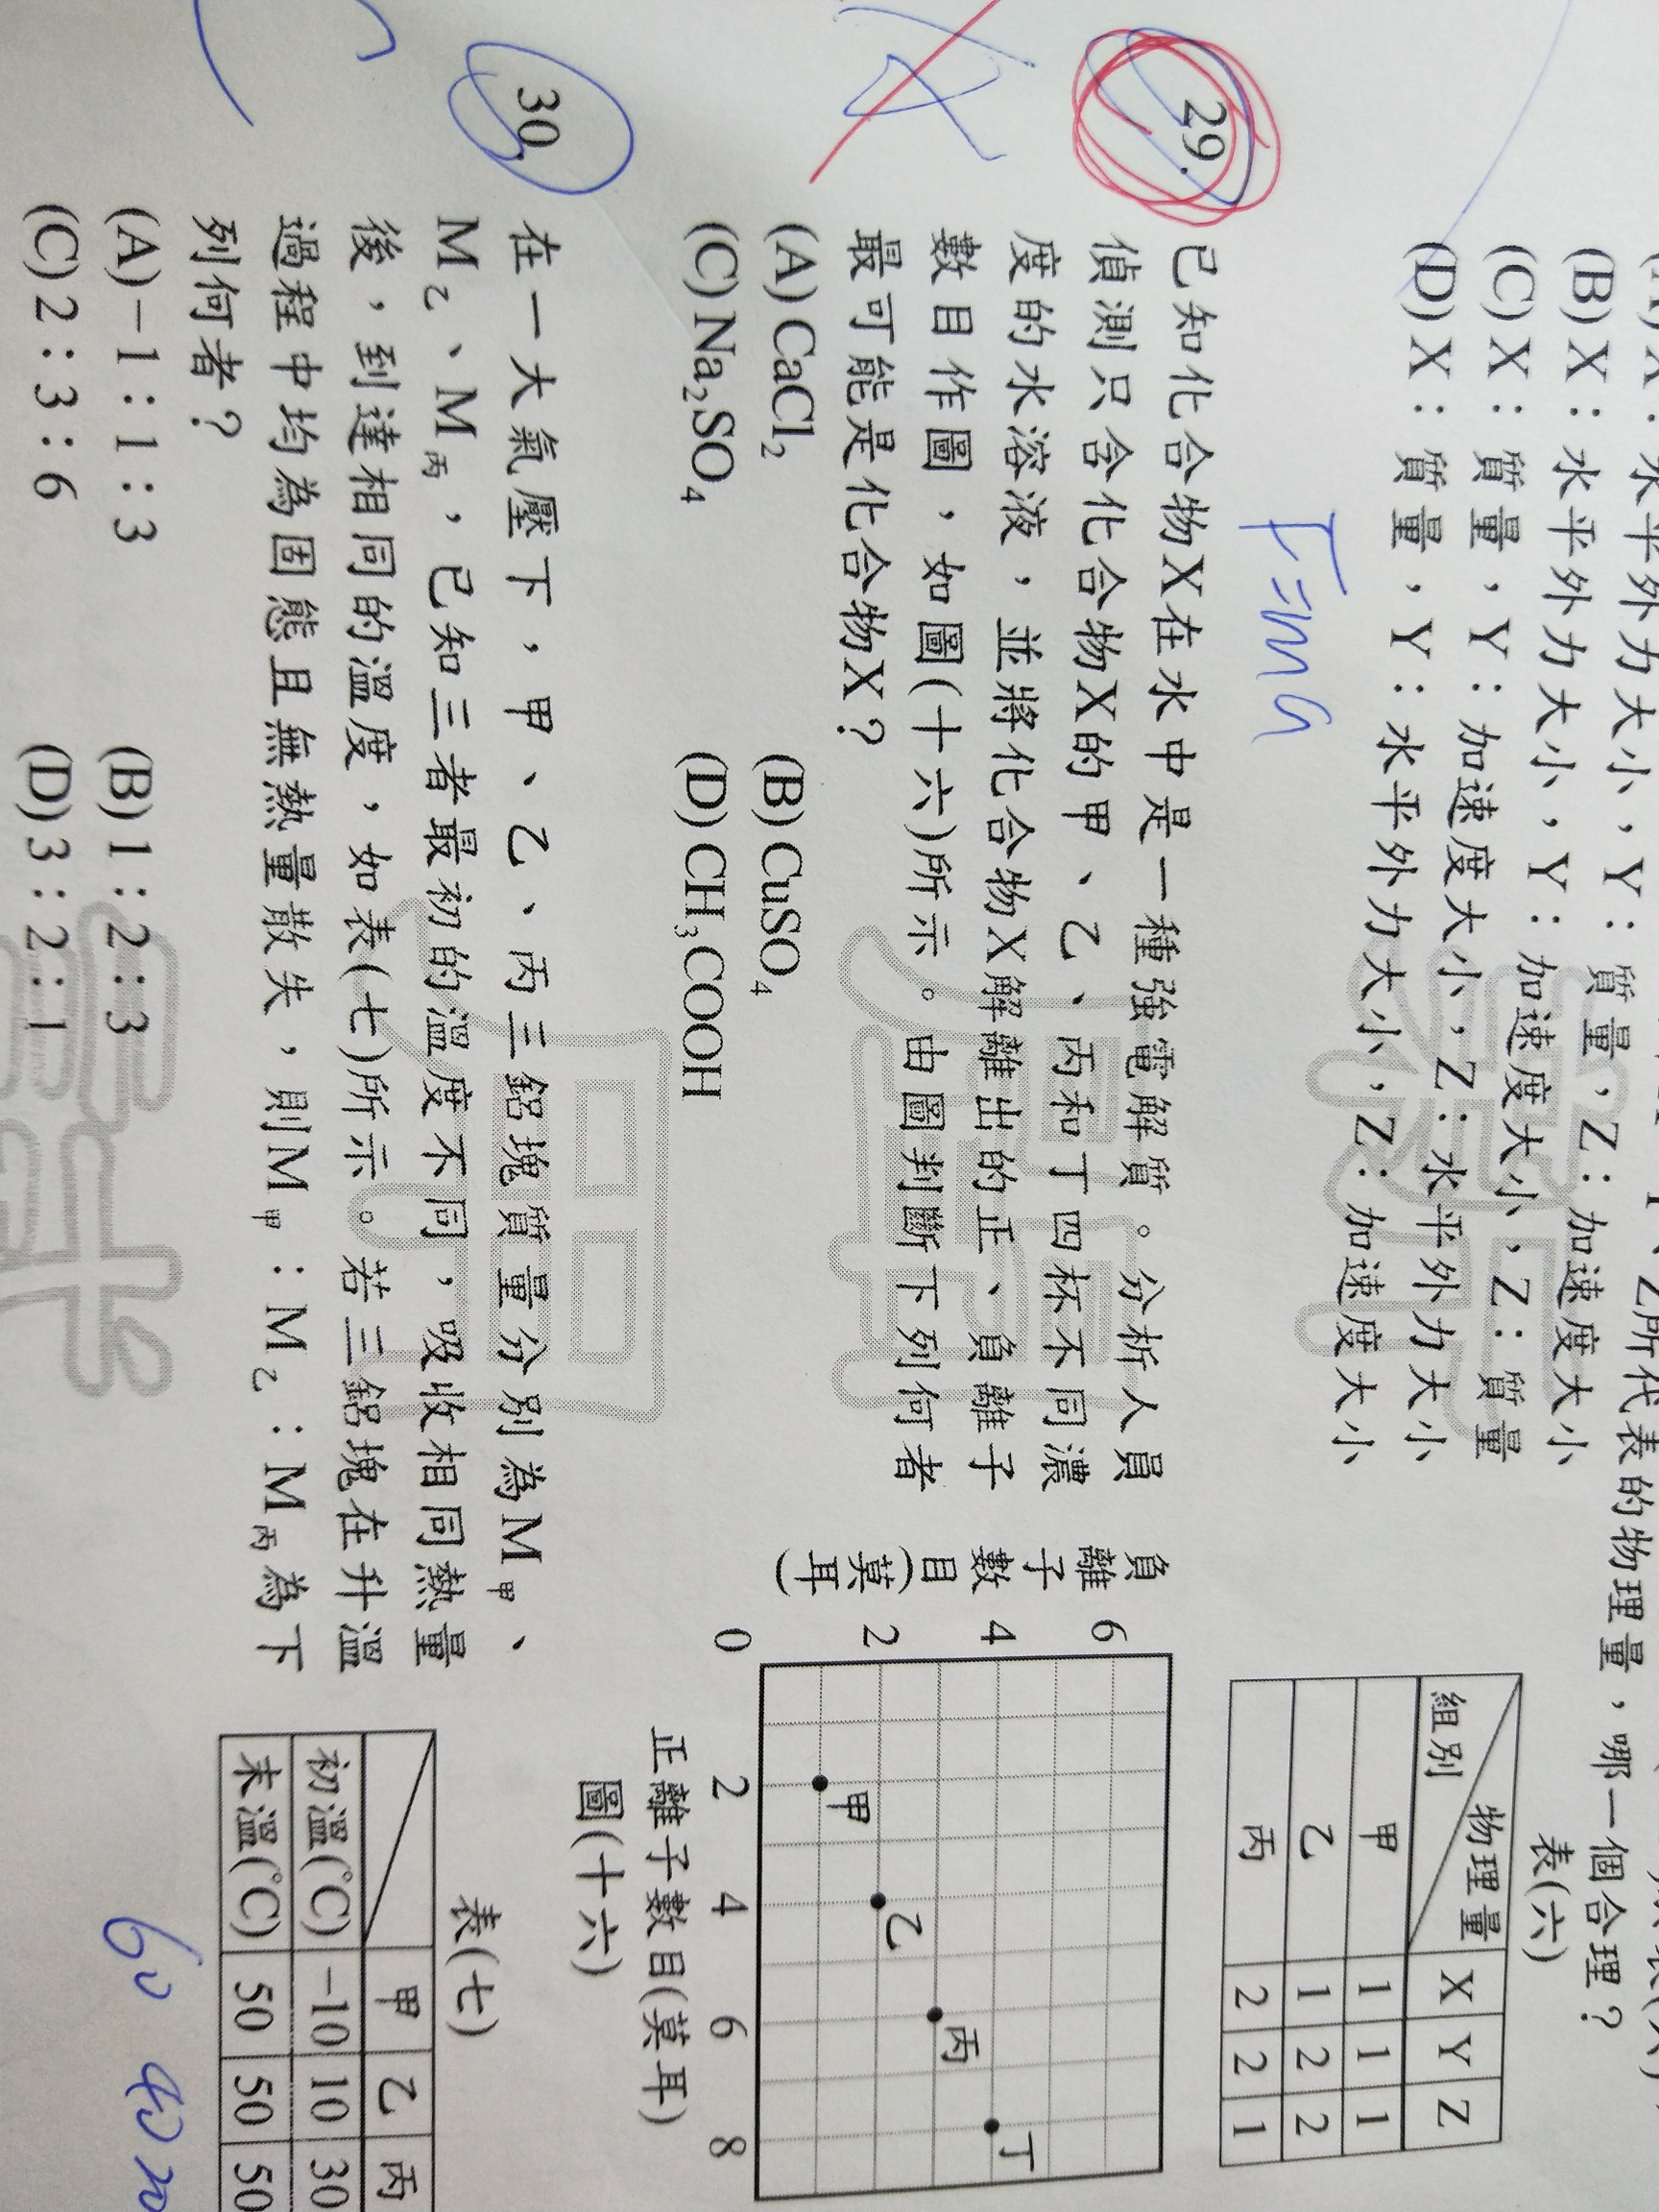 Z所代表的物理量，哪一個合理？
(B) X：水平外力大小，Y：質量，Z：加速度大小
(C) X：質量，Y：加速度大小，Z：水平外力大小
(D) X：質量，Y：水平外力大小，Z：加速度大小
表(六)
物理量
組別
X Y Z
甲 1 1 1
乙 1 2 2
丙 2 2 1
F=ma
29.
已知化合物X在水中是一種強電解質。分析人員
偵測只含化合物X的甲、乙、丙和丁四杯不同濃
度的水溶液，並將化合物X解離出的正、負離子
數目作圖，如圖(十六)所示。由圖判斷下列何者
最可能是化合物X？
(A) CaCl₂
(B) CuSO₄
(C) Na₂SO₄
(D) CH₃COOH
負離子數目(莫耳)
6
4
2
0
2 4 6 8
甲
乙
丙
丁
正離子數目(莫耳)
圖(十六)
30.
在一大氣壓下，甲、乙、丙三鋁塊質量分別為M甲、
M乙、M丙，已知三者最初的溫度不同，吸收相同熱量
後，到達相同的溫度，如表(七)所示。若三鋁塊在升溫
過程中均為固態且無熱量散失，則M甲：M乙：M丙為下
列何者？
(A) －1：1：3
(B) 1：2：3
(C) 2：3：6
(D) 3：2：1
表(七)
甲 乙 丙
初溫(℃) －10 10 30
末溫(℃) 50 50 50
60 40